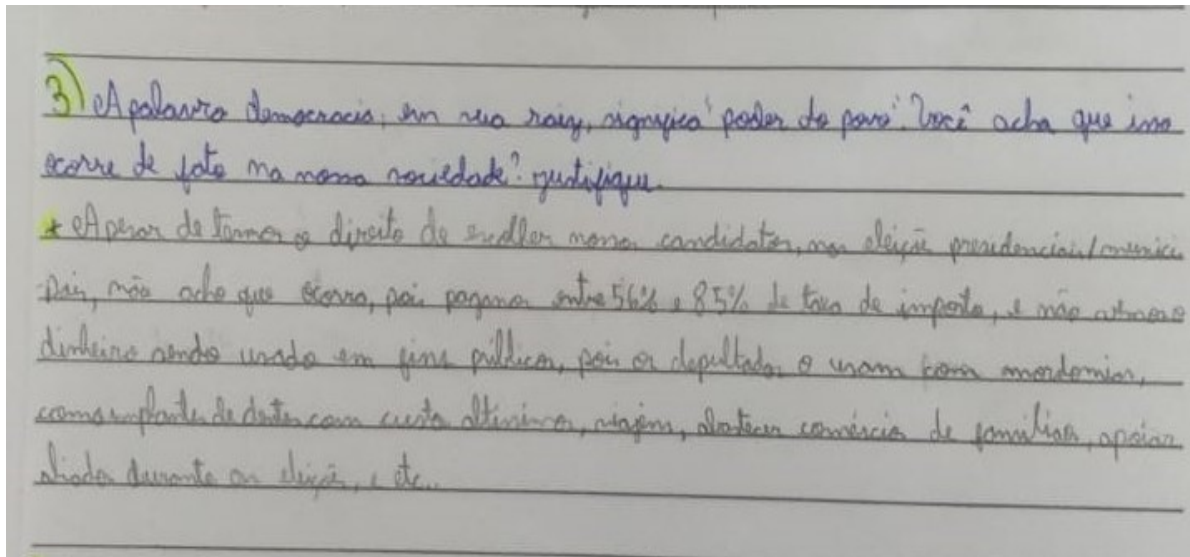 3) A palavra democracia, em sua raiz, significa 'poder do povo'. Você acha que isso
ocorre de fato na nossa sociedade? justifique.
* Apesar de termos o direito de escolher nossos candidatos, nas eleição presidenciais/munici
pais, não acho que ocorra, pois pagamos entre 56% e 85% de taxa de imposto, e não vemos o
dinheiro sendo usado em fins públicos, pois os depultados o usam com mordomias,
como implantes de dentes com custo altíssimos, viagens, abatecer comércios de famílias, apoiar
aliados durante as eleição, e etc..